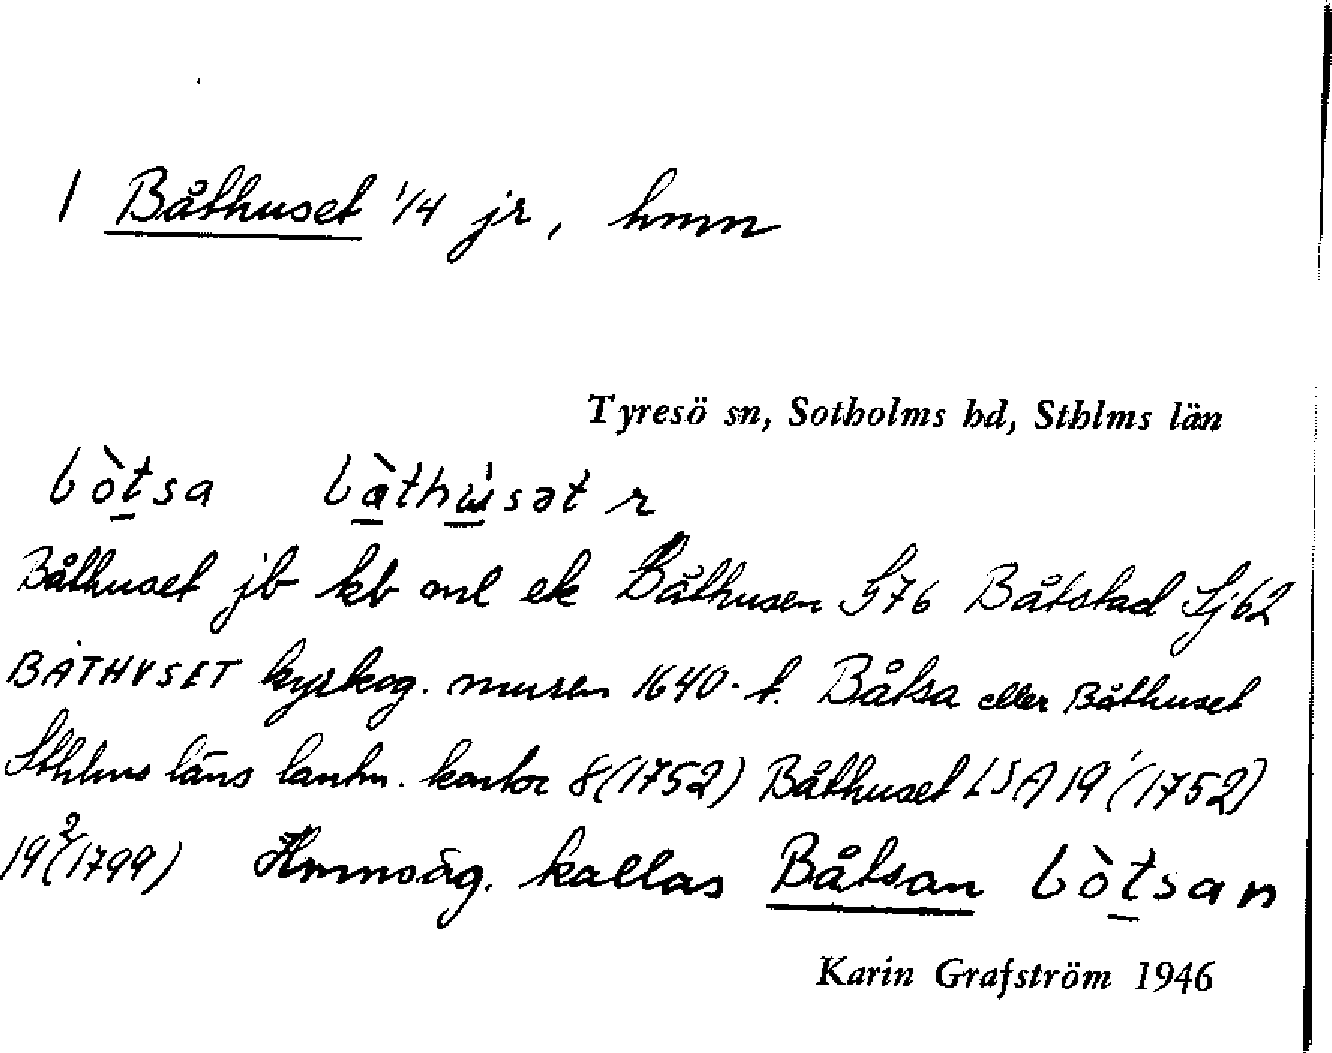 1 Båthuset 1/4 jr, hmn
Tyresö sn, Sotholms hd, Sthlms län
bòtsa bàthusət r
Båthuset jb kb onl ek Båthusen G76 Båtstad Sj62
BÅTHVSET kyrkog. muren 1640-t. Båtsa eller Båthuset
Sthlms läns lantm. kontor 8(1752) Båthuset LSA 19¹(1752)
19²(1799) Hmnsäg. kallas Båtsan bòtsan
Karin Grafström 1946